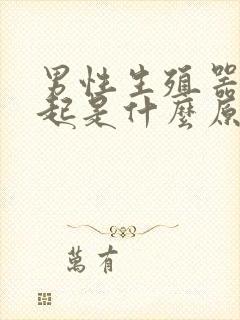 男性生殖器
起是什麼原
萬有